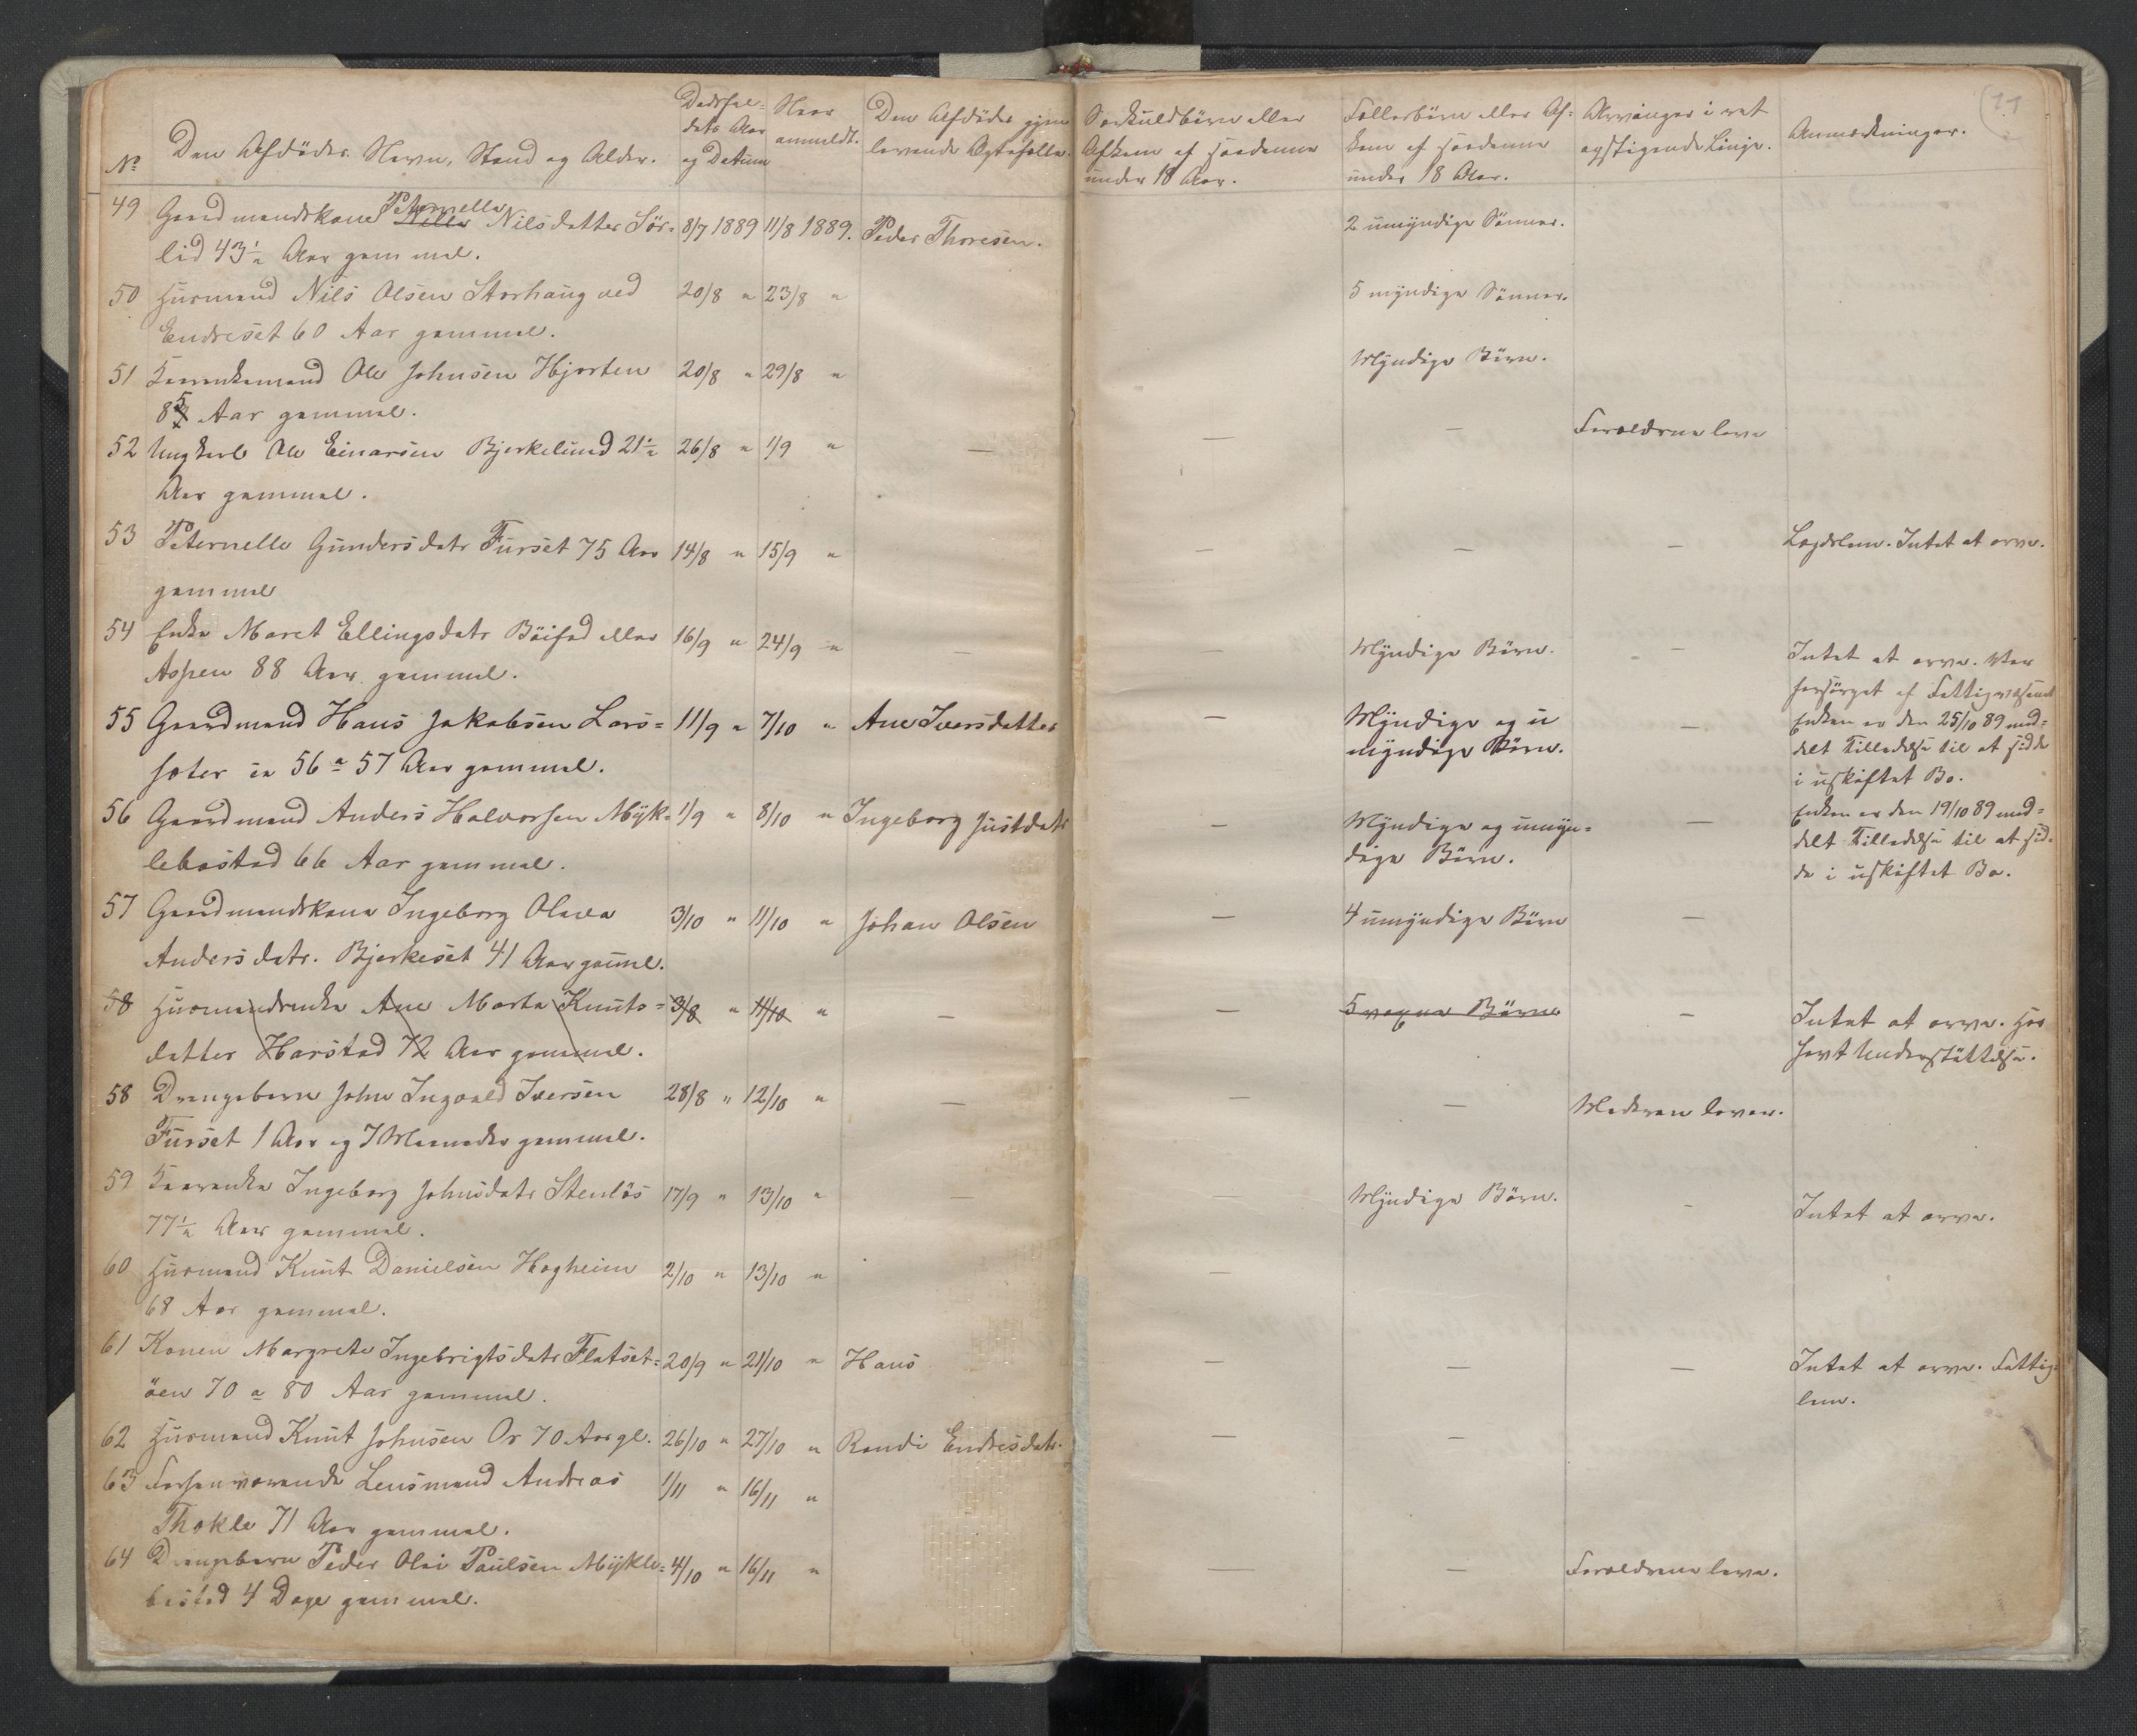 11
Nº
Den Afdödes Navn, Stand og Alder.
Dødsfal=
dets Aar
og Datum
Naar
anmeldt.
Den Afdödes gjen
levende Ægtefælle.
Særkuldbörn eller
Afkom af saadanne
under 18 Aar.
Fællesbörn eller Af=
kom af saadanne
under 18 Aar.
Arvinger i ret
opstigende Linje.
Anmærkninger.
49 Gaardmandskone Peternella Nilsdatter Sör= 8/7 1889 11/8 1889. Peder Thoresen. 2 umyndige Sönner.
lid 43½ Aar gammel.
50 Husmand Nils Olsen Storhaug ved 20/8 " 23/8 " 5 myndige Sönner.
Endreset 60 Aar gammel.
51 Kaarenkemand Ole Johnsen Hjorten 20/8 " 29/8 " Myndige Börn.
85 Aar gammel.
52 Ungkarl Ole Einarsen Bjerkelund 21½ 26/8 " 1/9 " — — — Forældrene leve
Aar gammel.
53 Peternelle Gundersdatr Furset 75 Aar 14/8 " 15/9 " — — — Lægdslem. Intet at arve.
gammel
54 Enke Maret Ellingsdatr Böifod eller 16/9 " 24/9 " — — Myndige Börn. — Intet at arve. Var
Aspen 88 Aar gammel. forsörget af Fattigvæsenet
55 Gaardmand Hans Jakobsen Lars= 11/9 " 7/10 " Ane Iversdatter — Myndige og u — Enken er den 25/10 89 med=
sæter ca 56 a 57 Aar gammel. myndige Börn. delt Tilladelse til at sidde
i uskiftet Bo.
56 Gaardmand Anders Halvorsen Myk= 1/9 " 8/10 " Ingeborg Justdatr — Myndige og umyn= — Enken er den 19/10 89 med=
lebostad 66 Aar gammel. dige Börn. delt Tilladelse til at sid=
de i uskiftet Bo.
57 Gaardmandskone Ingeborg Olava 3/10 " 11/10 " Johan Olsen — 4 umyndige Börn —
Andersdatr. Bjerkeset 41 Aar gamml.
58 Husmandsenke Ane Marta Knuts= 3/8 " 11/10 " — — 5 voxne Börn — Intet at arve. Har
datter Harstad 72 Aar gammel. havt Understöttelse.
58 Drengebarn John Ingvald Iversen 28/8 " 12/10 " — — — Moderen lever.
Furset 1 Aar og 7 Maaneder gammel.
59 Kaarenke Ingeborg Johnsdatr Stenlös 17/9 " 13/10 " — — Myndige Börn. — Intet at arve.
77½ Aar gammel.
60 Husmand Knut Danielsen Hogheim 2/10 " 13/10 " —
68 Aar gammel.
61 Konen Margrete Ingebrigtsdatr Flatset= 20/9 " 21/10 " Hans — — — Intet at arve. Fattig=
öen 70 a 80 Aar gammel. lem.
62 Husmand Knut Johnsen Or 70 Aar gl. 26/10 " 27/10 " Randi Endresdatr. — —
63 Forhenværende Lensmand Andreas 1/11 " 16/11 "
Thokle 71 Aar gammel.
64 Drengebarn Peder Olai Paulsen Mykle= 4/10 " 16/11 " — — Forældrene leve.
bostad 4 Dage gammel.